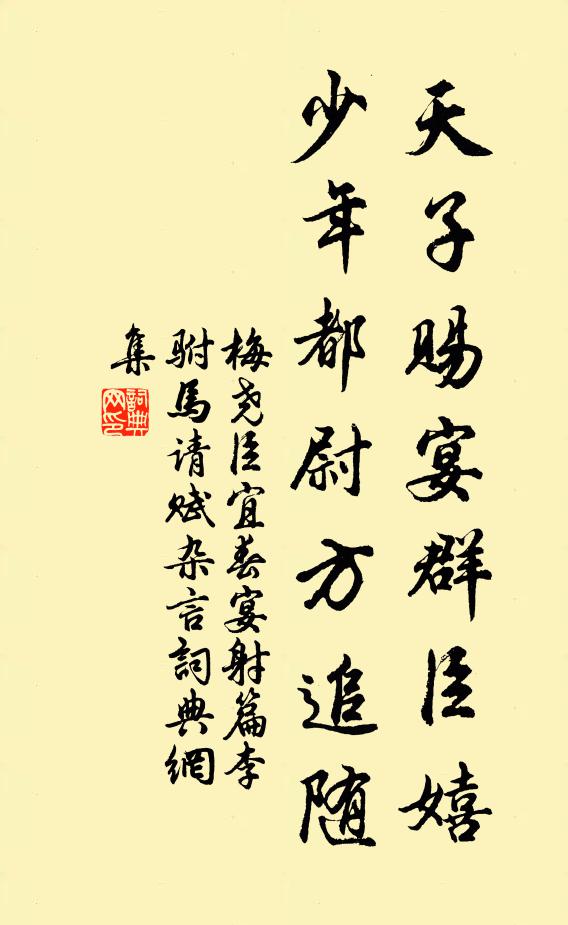 天子赐宴群臣嬉
少年都尉方追随
梅尧臣宜春宴射篇李
駙马请赋杂言詞典網
集
詞典网印